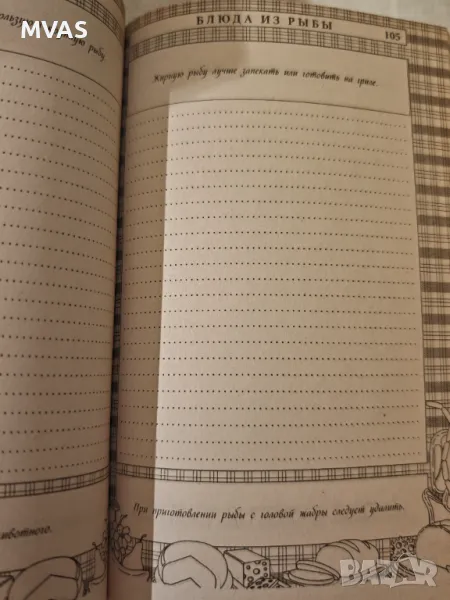 MVAS
БЛЮДА ИЗ РЫБЫ
105
рыбу.
Жирную рыбу лучше запекать или готовить на гриле.
При приготовлении рыбы с головой жабры следует удалить.
животного.
BAZAR